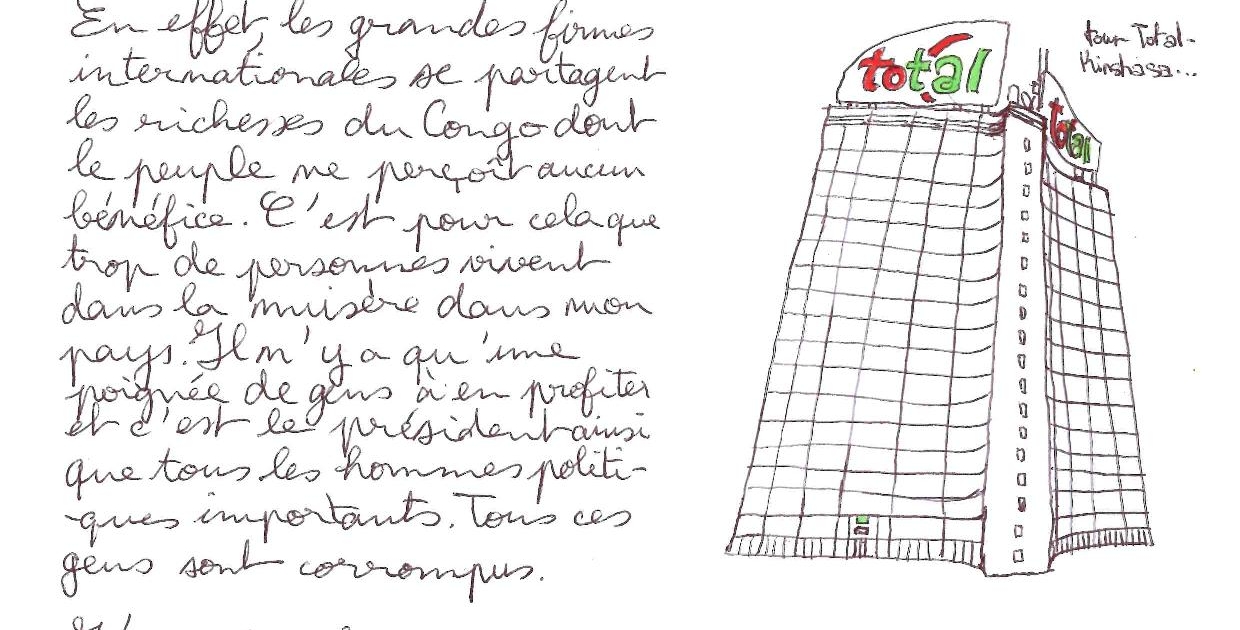 En effet, les grandes firmes
internationales se partagent
les richesses du Congo dont
le peuple ne perçoit aucun
bénéfice. C'est pour cela que
trop de personnes vivent
dans la misère dans mon
pays. Il n'y a qu'une
poignée de gens à en profiter
et c'est le président ainsi
que tous les hommes politi-
-ques importants. Tous ces
gens sont corrompus.
total
total
tour Total-
Kinshasa...